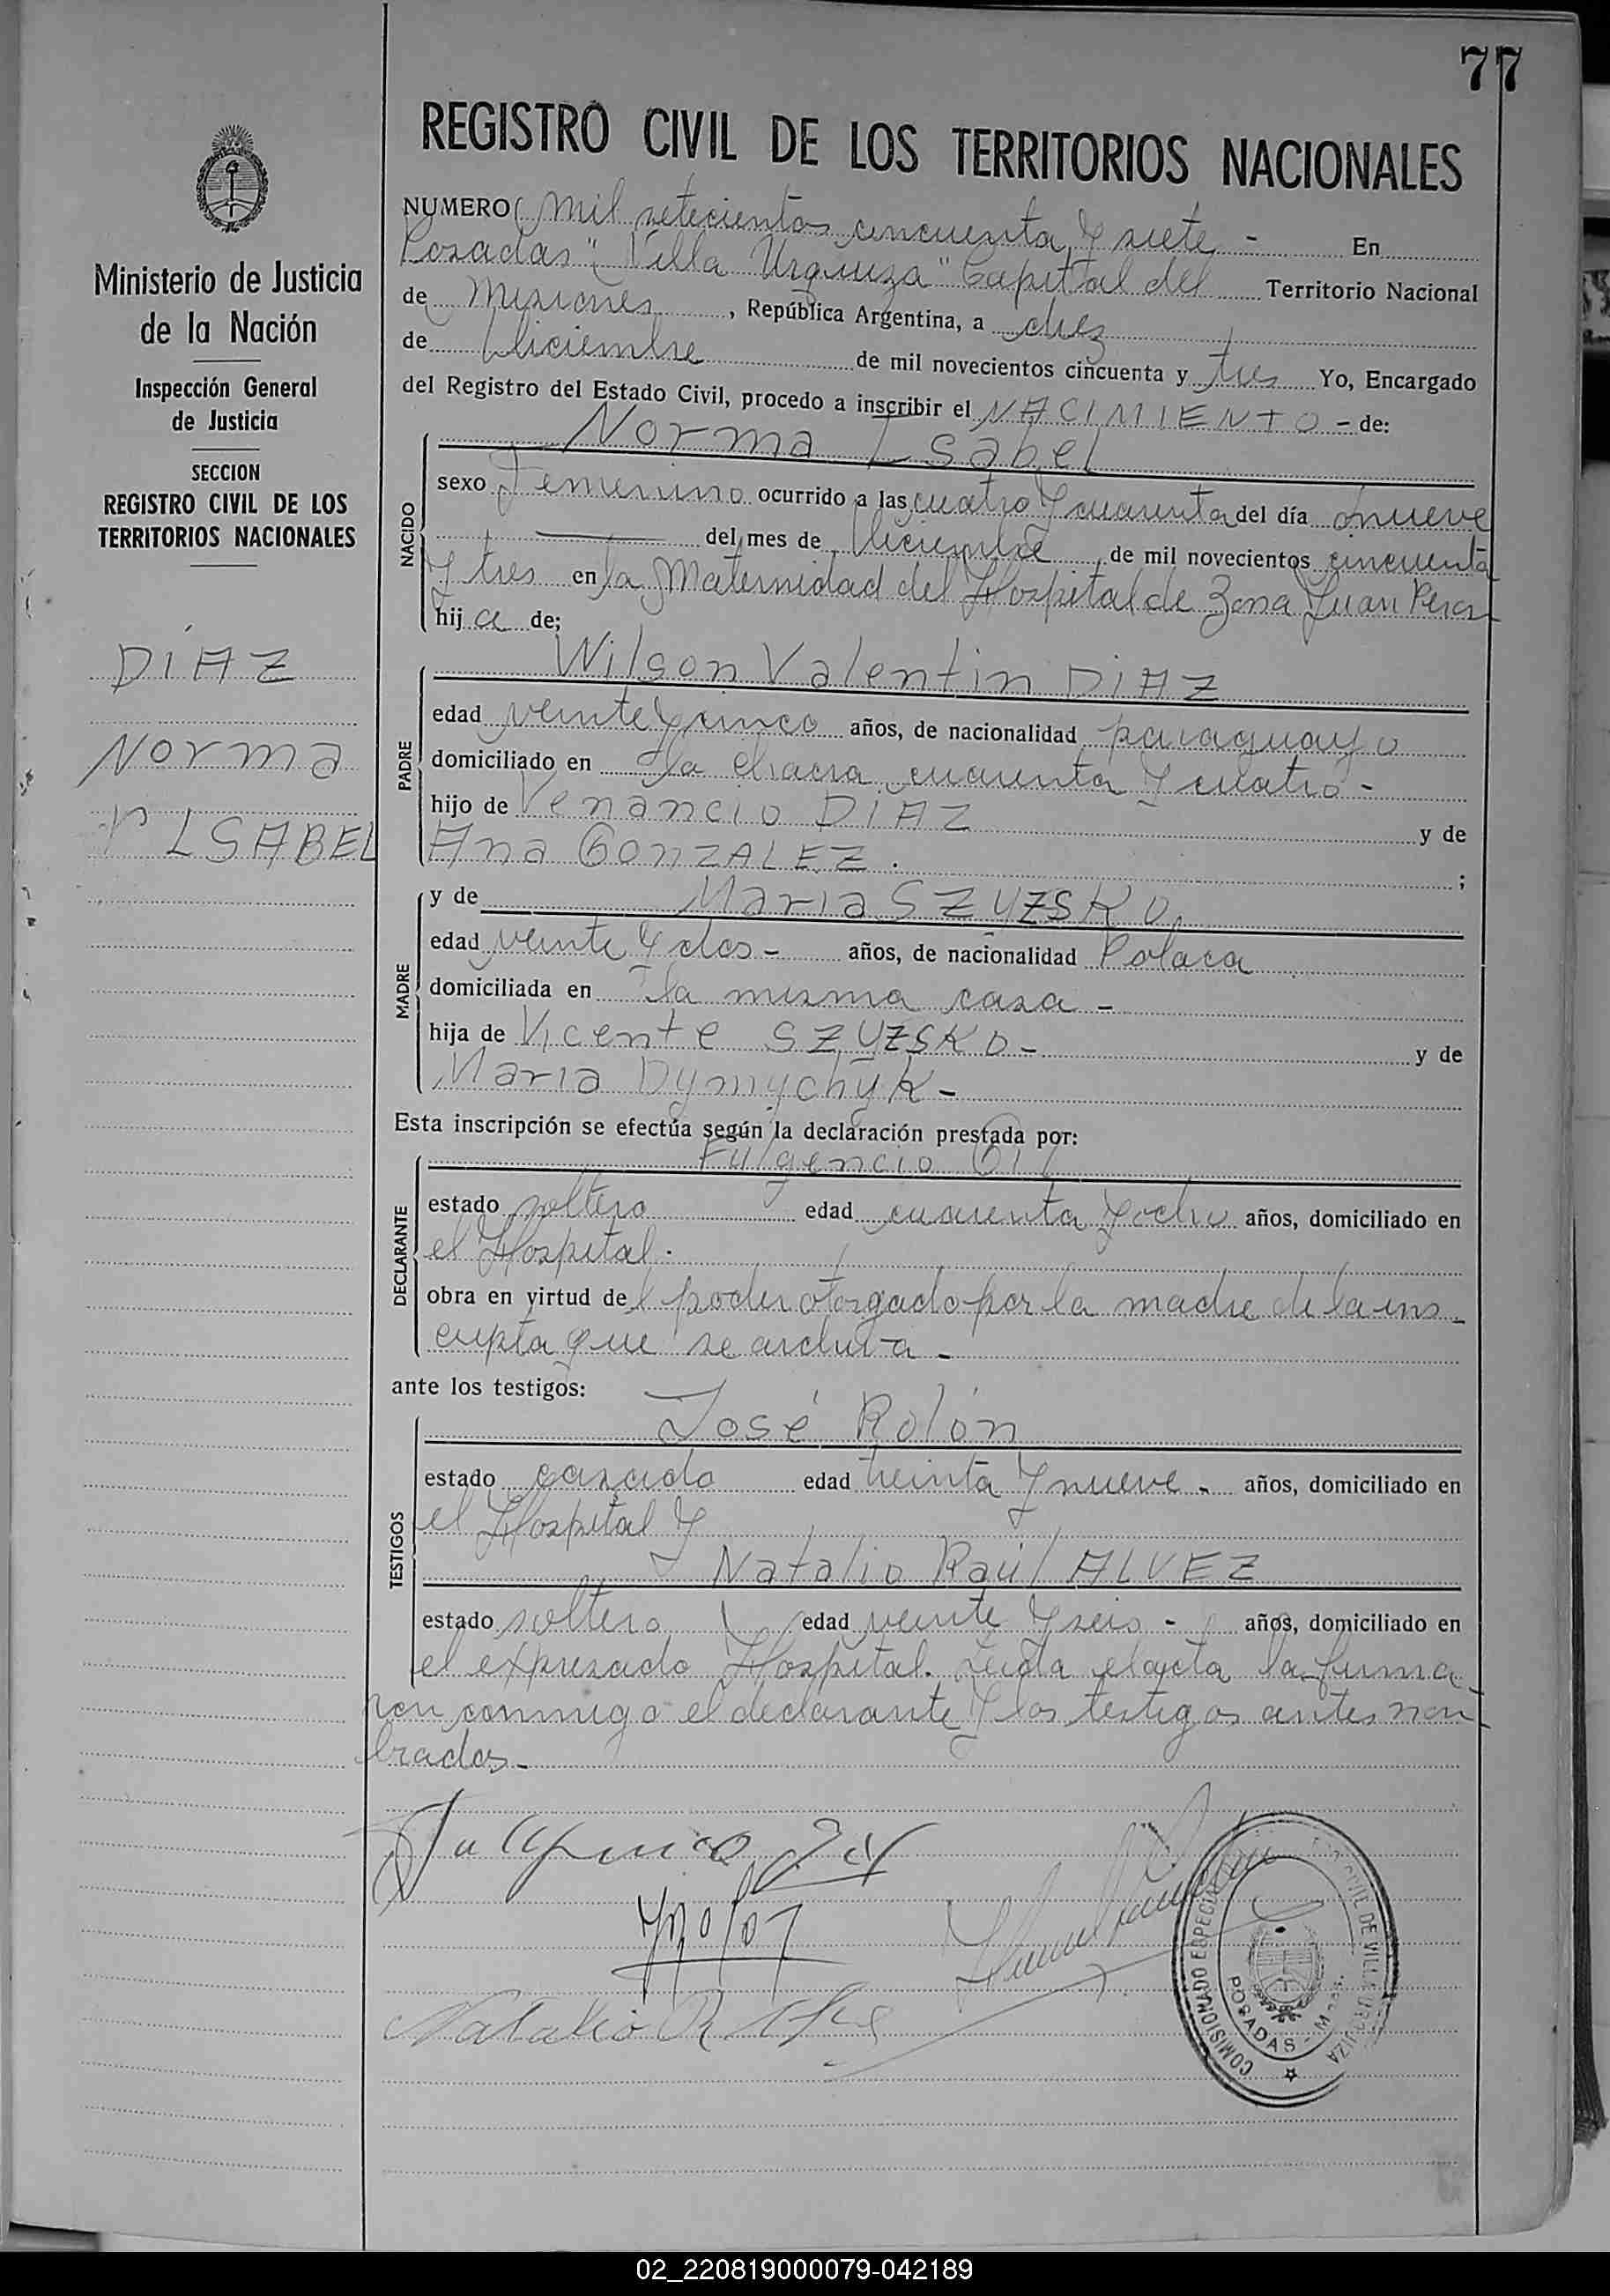 77
REGISTRO CIVIL DE LOS TERRITORIOS NACIONALES
Ministerio de Justicia
de la Nación
Inspección General
de Justicia
SECCION
REGISTRO CIVIL DE LOS
TERRITORIOS NACIONALES
DIAZ
Norma
ISABEL
NUMERO mil setecientos cincuenta y siete - En
Posadas "Villa Urquiza" Capital del Territorio Nacional
de Misiones, República Argentina, a diez
de Diciembre de mil novecientos cincuenta y tres Yo, Encargado
del Registro del Estado Civil, procedo a inscribir el NACIMIENTO - de:
Norma Isabel
NACIDO
sexo Femenino ocurrido a las cuatro y cuarenta del día nueve
del mes de Diciembre, de mil novecientos cincuenta
y tres en la Maternidad del Hospital de Zona Juan Peron
hija de;
Wilson Valentin DIAZ
PADRE
edad veinte y cinco años, de nacionalidad paraguayo
domiciliado en la chacra cuarenta y cuatro -
hijo de Venancio DIAZ y de
Ana GONZALEZ. ;
y de Maria SZYZSKO.
MADRE
edad veinte y dos - años, de nacionalidad Polaca
domiciliada en la misma casa -
hija de Vicente SZYZSKO - y de
Maria Dymychyk -
Esta inscripción se efectúa según la declaración prestada por:
Fulgencio Gil
DECLARANTE
estado soltero edad cuarenta y ocho años, domiciliado en
el Hospital.
obra en virtud del poder otorgado por la madre de la ins
cripta que se archiva -
ante los testigos:
José Rolón
TESTIGOS
estado casado edad treinta y nueve - años, domiciliado en
el Hospital y
Natalio Raúl ALVEZ
estado soltero edad veinte y seis - años, domiciliado en
el expresado Hospital. Leida el acta la firma
ron conmigo el declarante y los testigos antes nom
brados -
COMISIONADO ESPECIAL
CIVIL DE VILLA URQUIZA
POSADAS - Mnes.
02_220819000079-042189